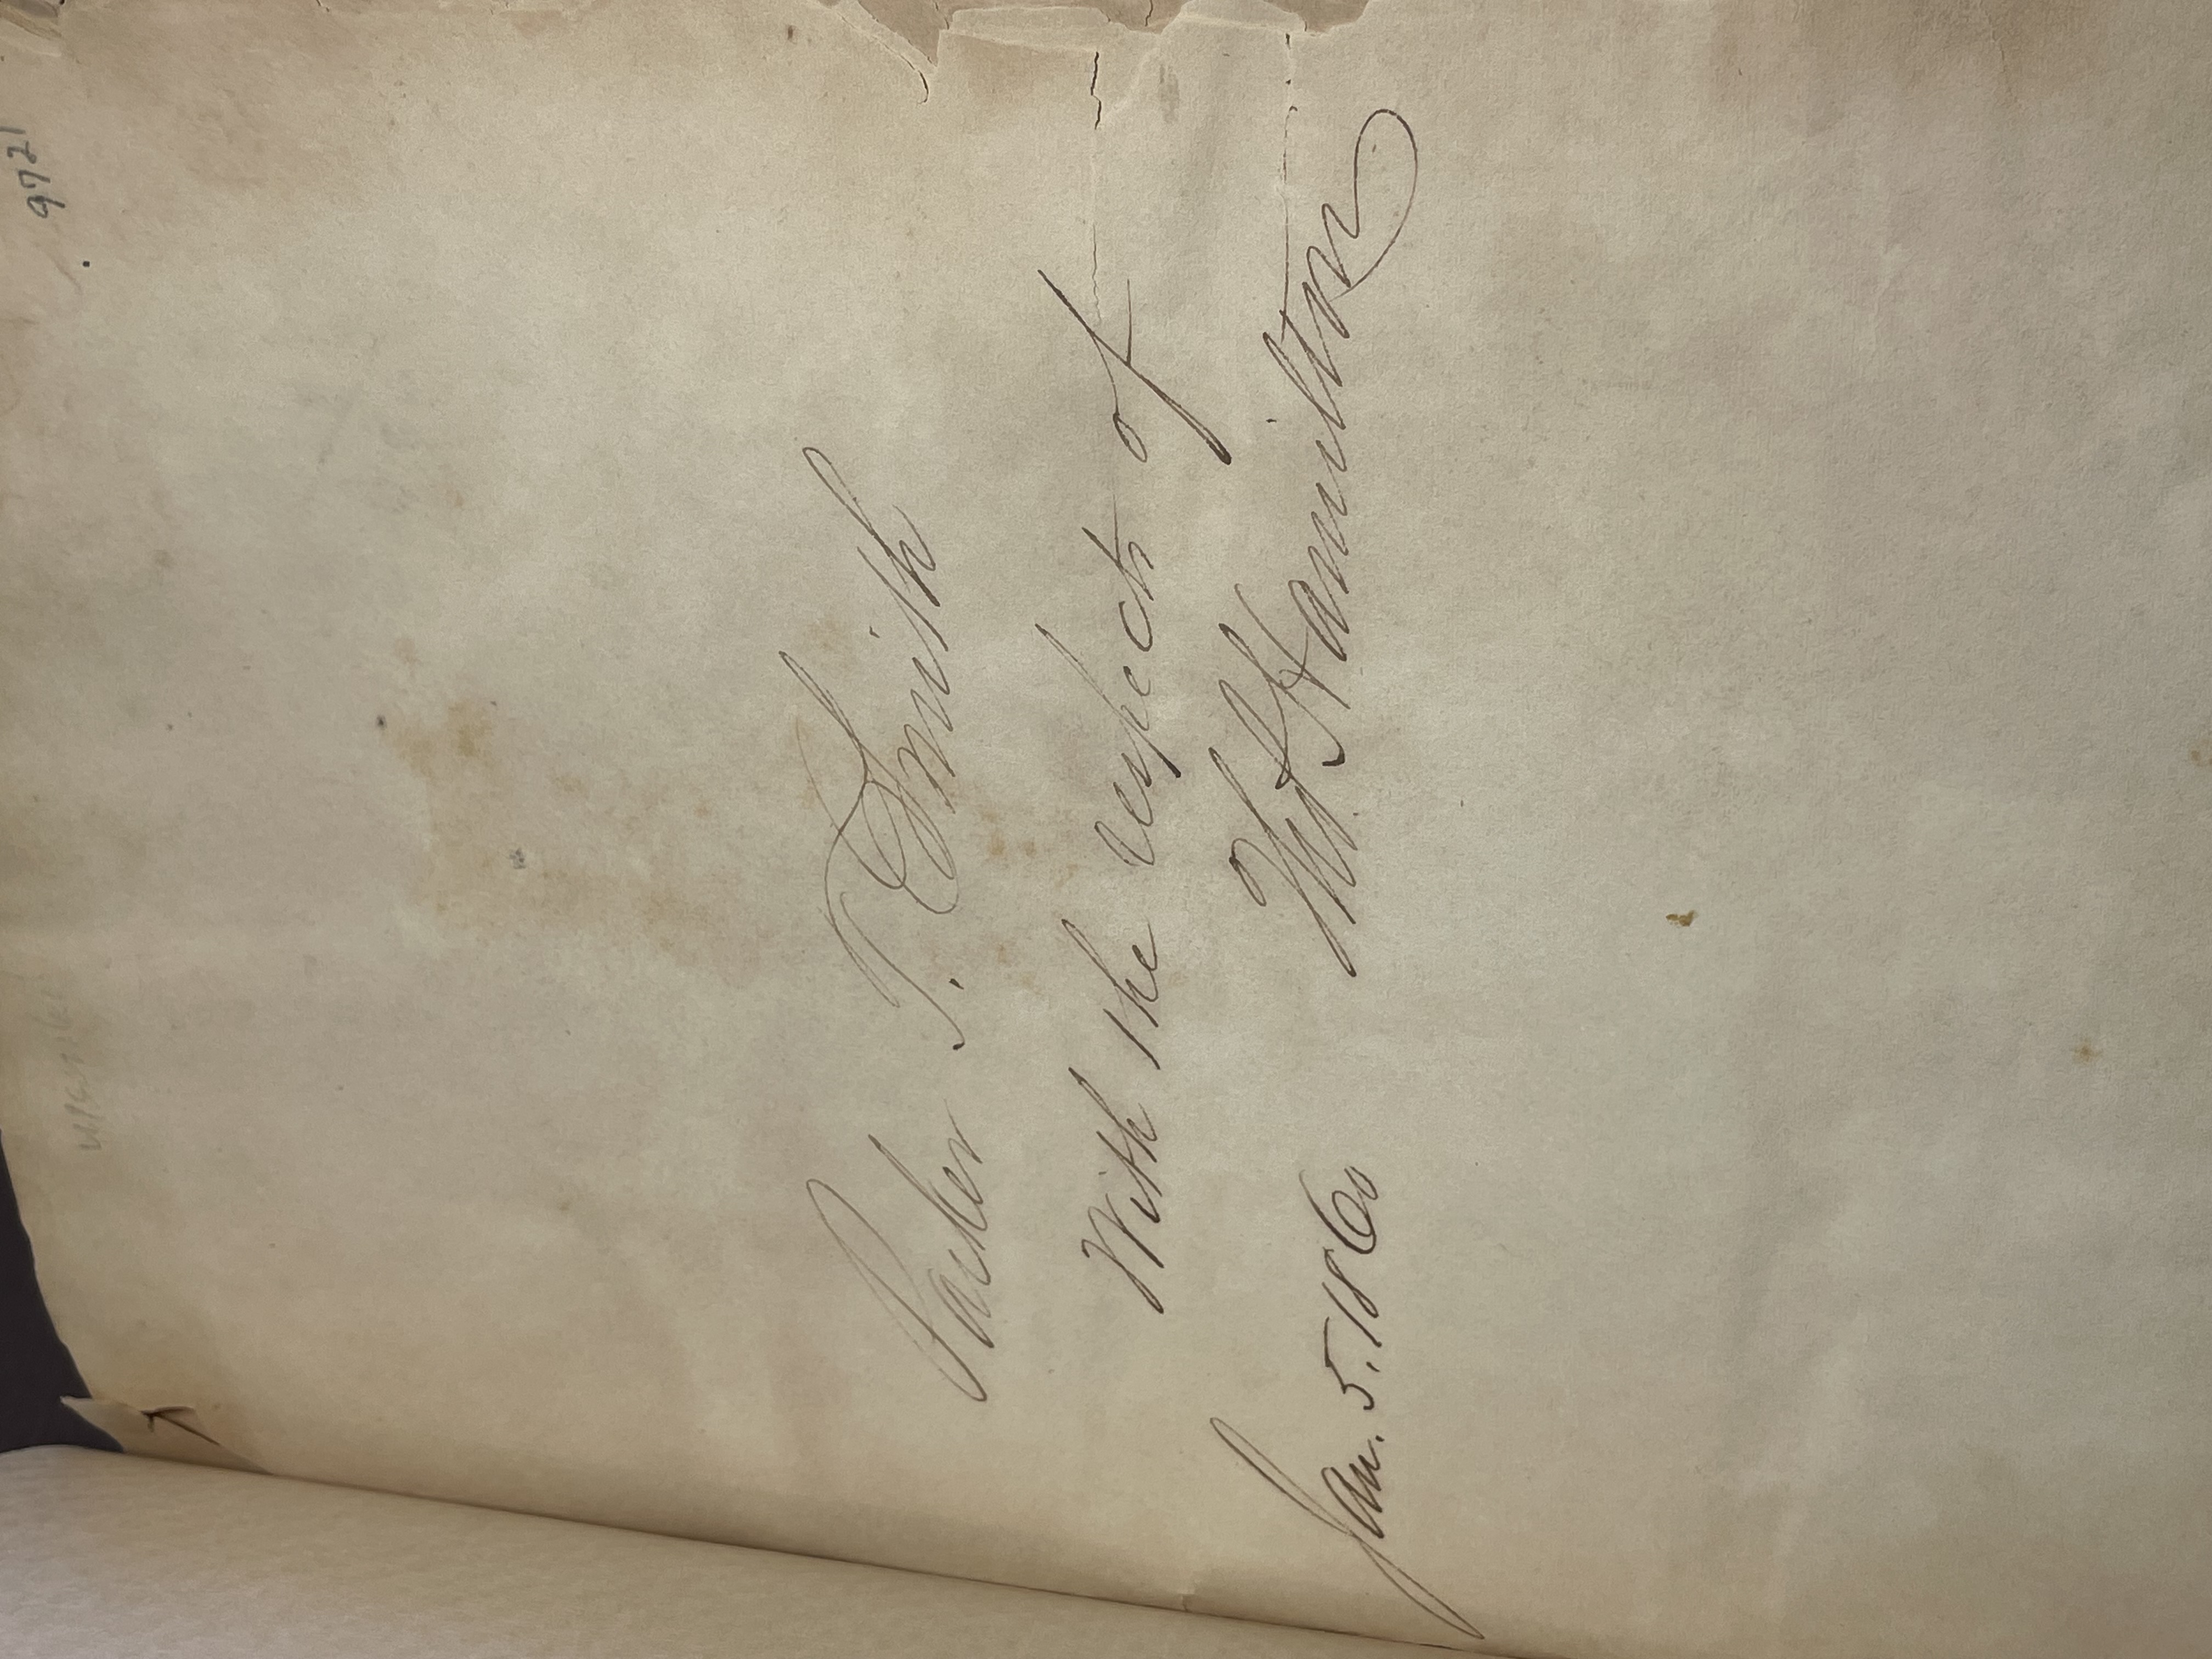 9721
Parker T. Smith
With the respects of
Jan. 5. 1860 Thos Hamilton